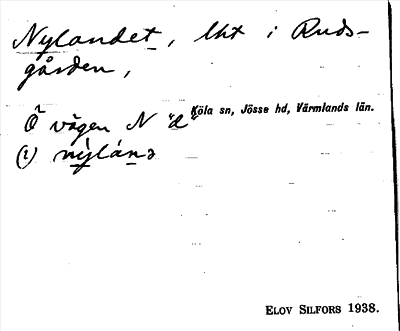 Nylandet, lht i Ruds-
gården,
Köla sn, Jösse hd, Värmlands län.
Ö vägen N "d"
(2) nýlánə
ELOV SILFORS 1938.